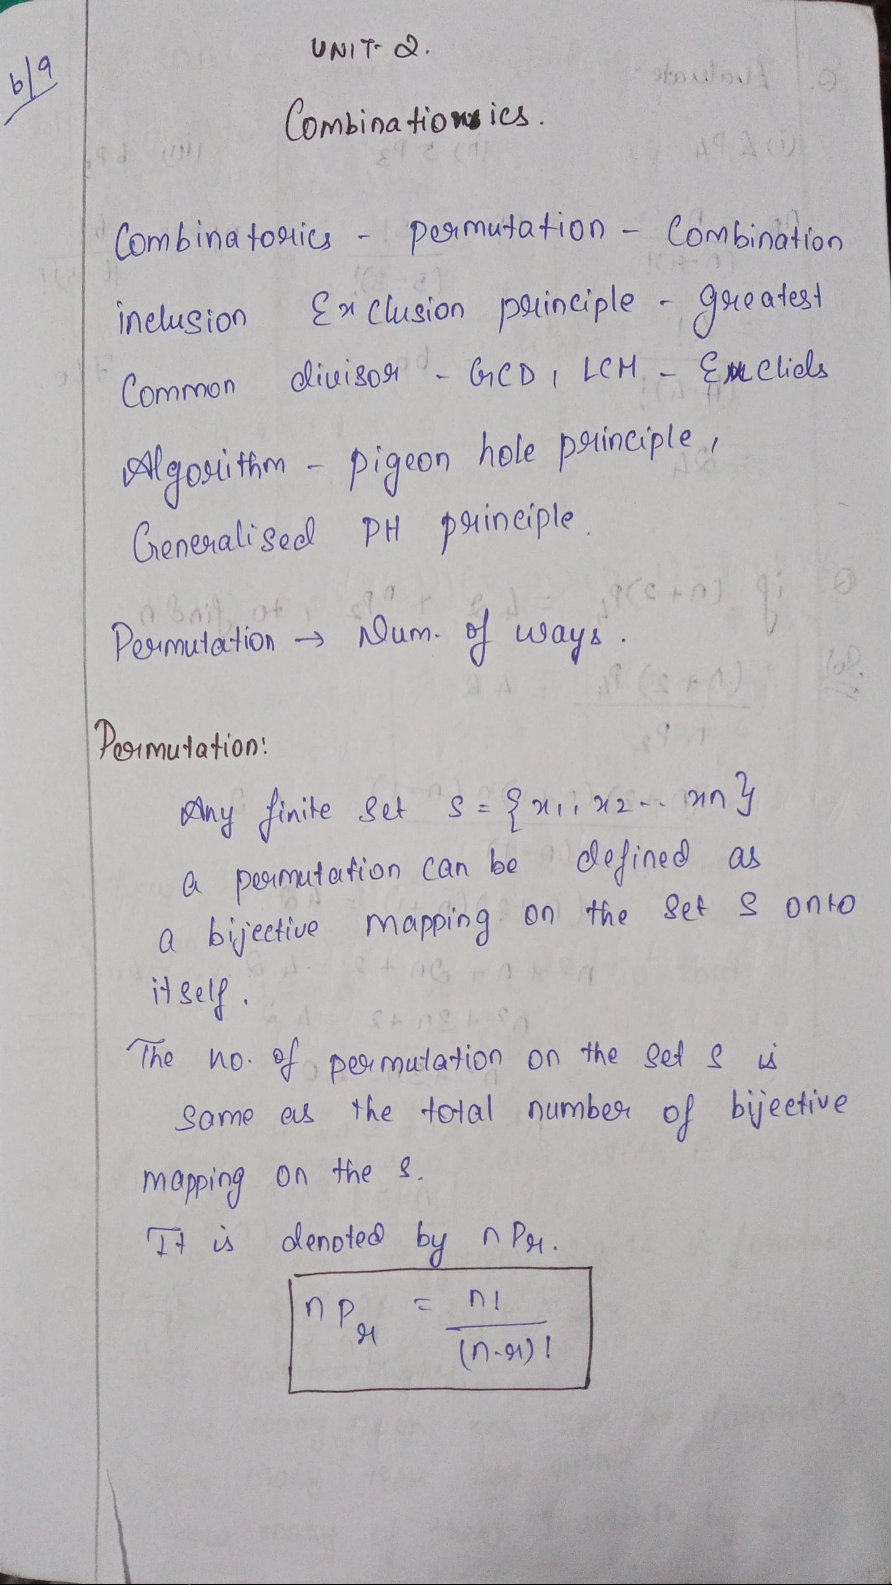 6/9
UNIT-2.
Combinationics.
Combinatorics - permutation - Combination
inclusion Exclusion principle - greatest
Common divisor - GCD, LCM - Euclids
Algorithm - pigeon hole principle,
Generalised PH principle.
Permutation → Num. of ways.
Permutation:
Any finite set S = {x1, x2 -- xn}
a permutation can be defined as
a bijective mapping on the set S onto
itself.
The no. of permutation on the set S is
same as the total number of bijective
mapping on the S.
It is denoted by nPr.
nPr = n! / (n-r)!